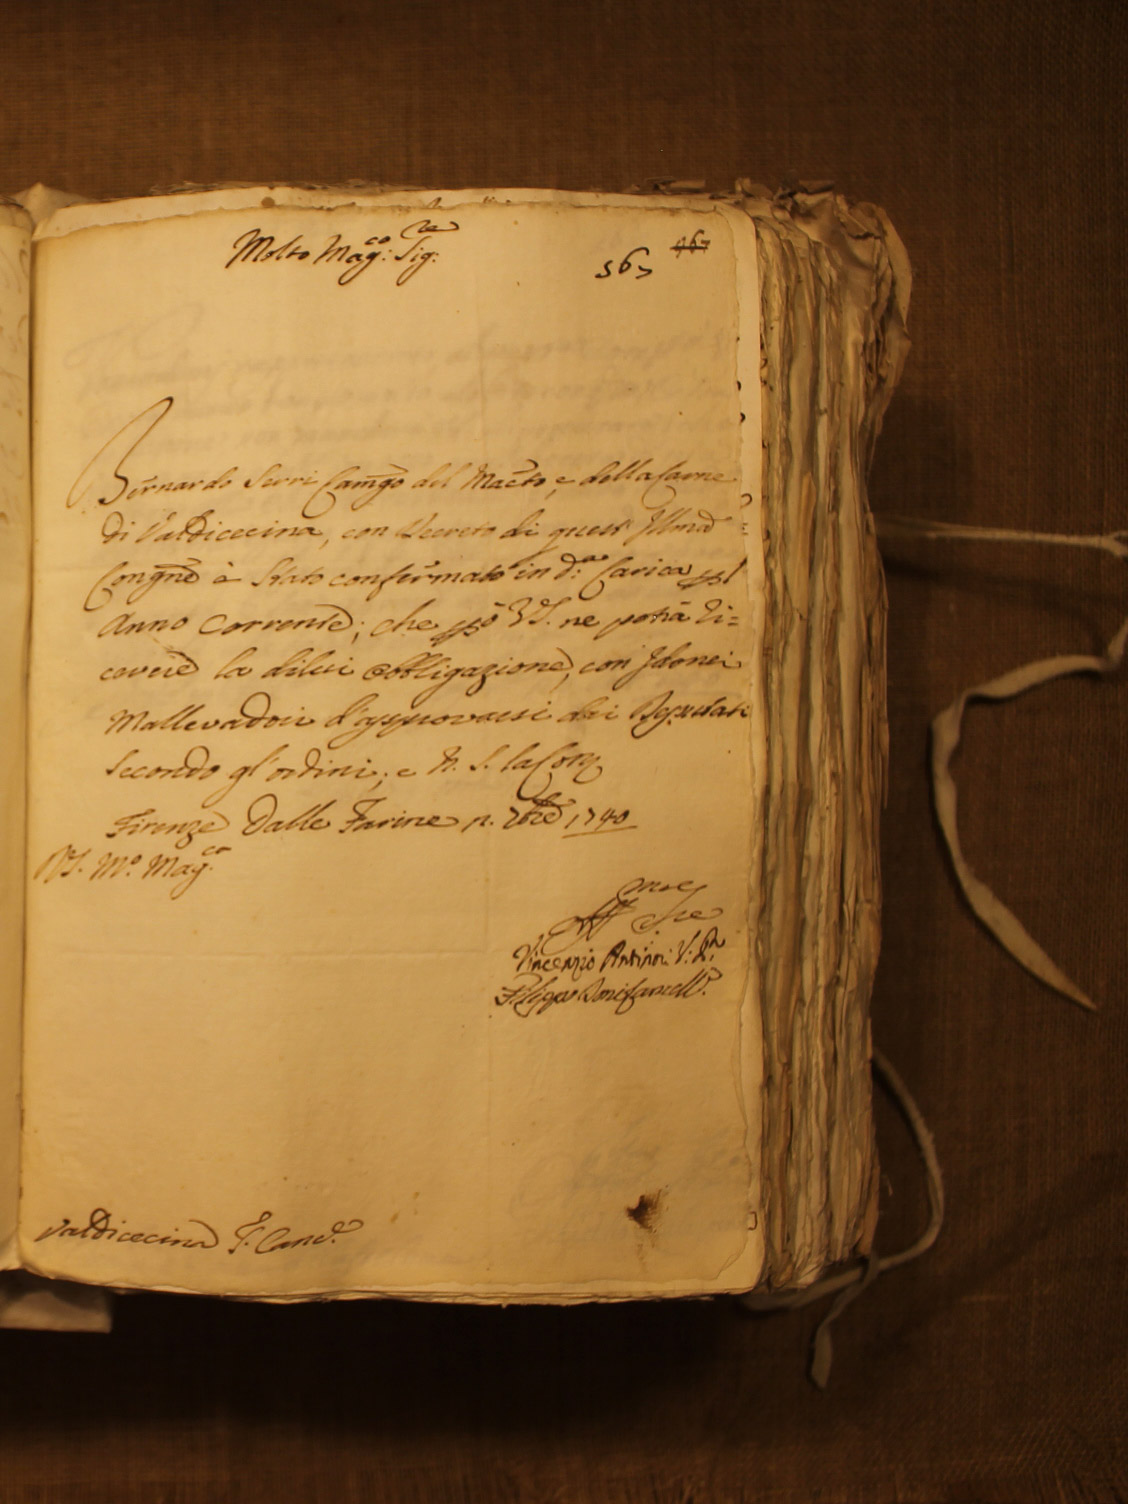 Molto Mag:co Sig:re
567 967
Bernardo Serri Camgo del Macto, e della Carne
di Valdicecina, con Decreto di quest' Illma
Congne è stato confermato in d:a Carica pl
Anno Corrente; che pò VS. ne potrà ri=
cevere la dilui obbligazione, con Idonei
Mallevadori d'approvarsi dai Deputati
secondo gl'ordini, e N. S. la Con
Firenze Dalle Farine p. 7bre 1740
VS. Mo. Mag:co
Vincenzio Antinori
Filippo
Valdicecina S. Canc:e